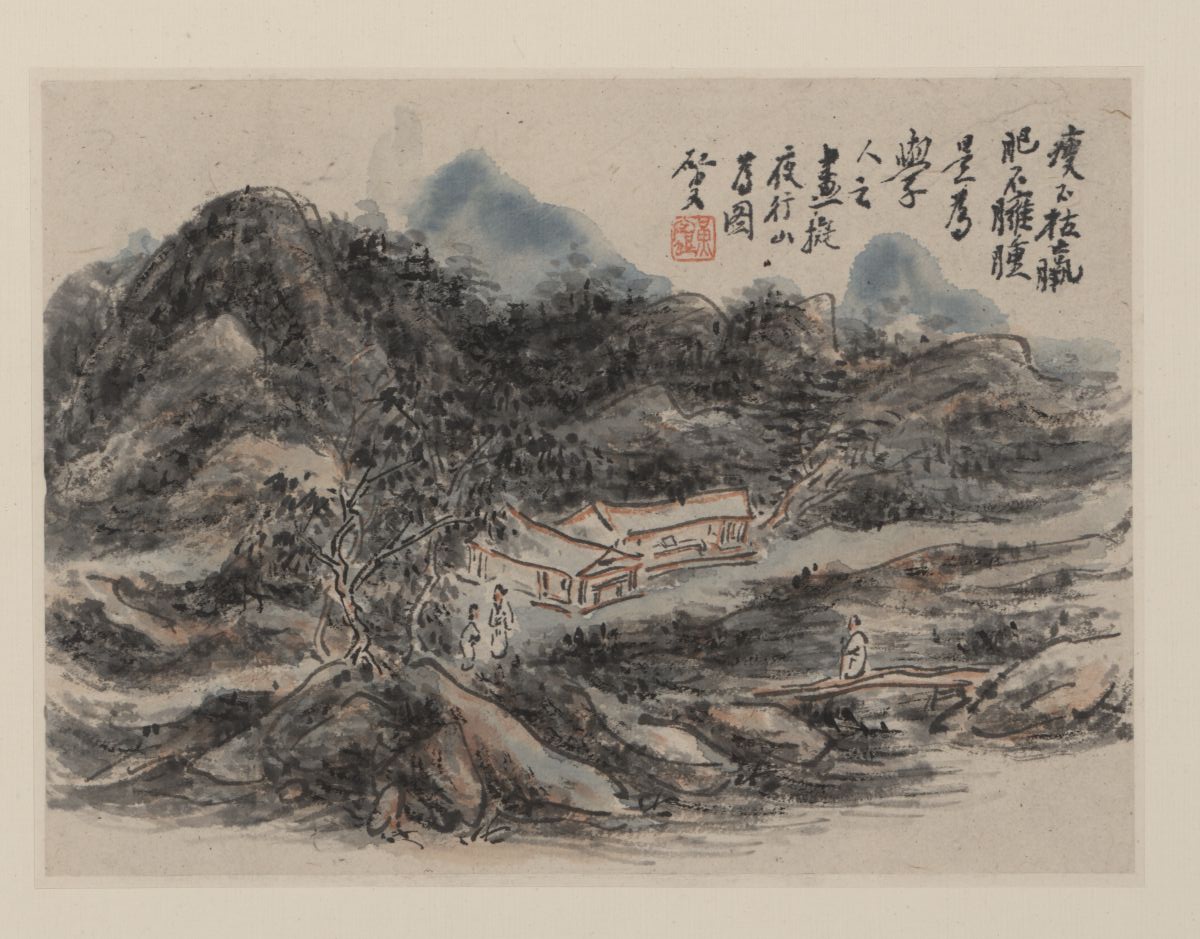 瘦不枯羸
肥不臃腫
是為
學
人之
畫擬
夜行山
為圖
矼叟